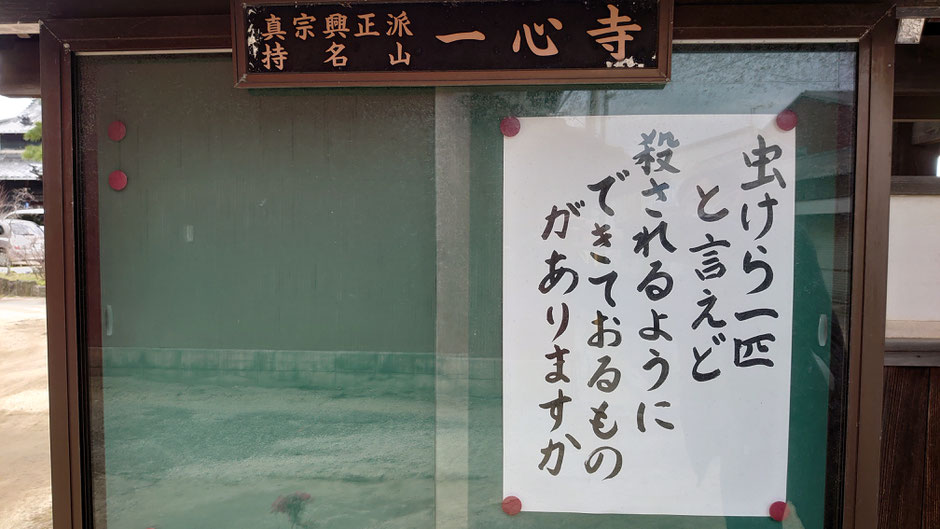 真宗興正派
持名山
一心寺
虫けら一匹
と言えど
殺されるように
できておるもの
がありますか